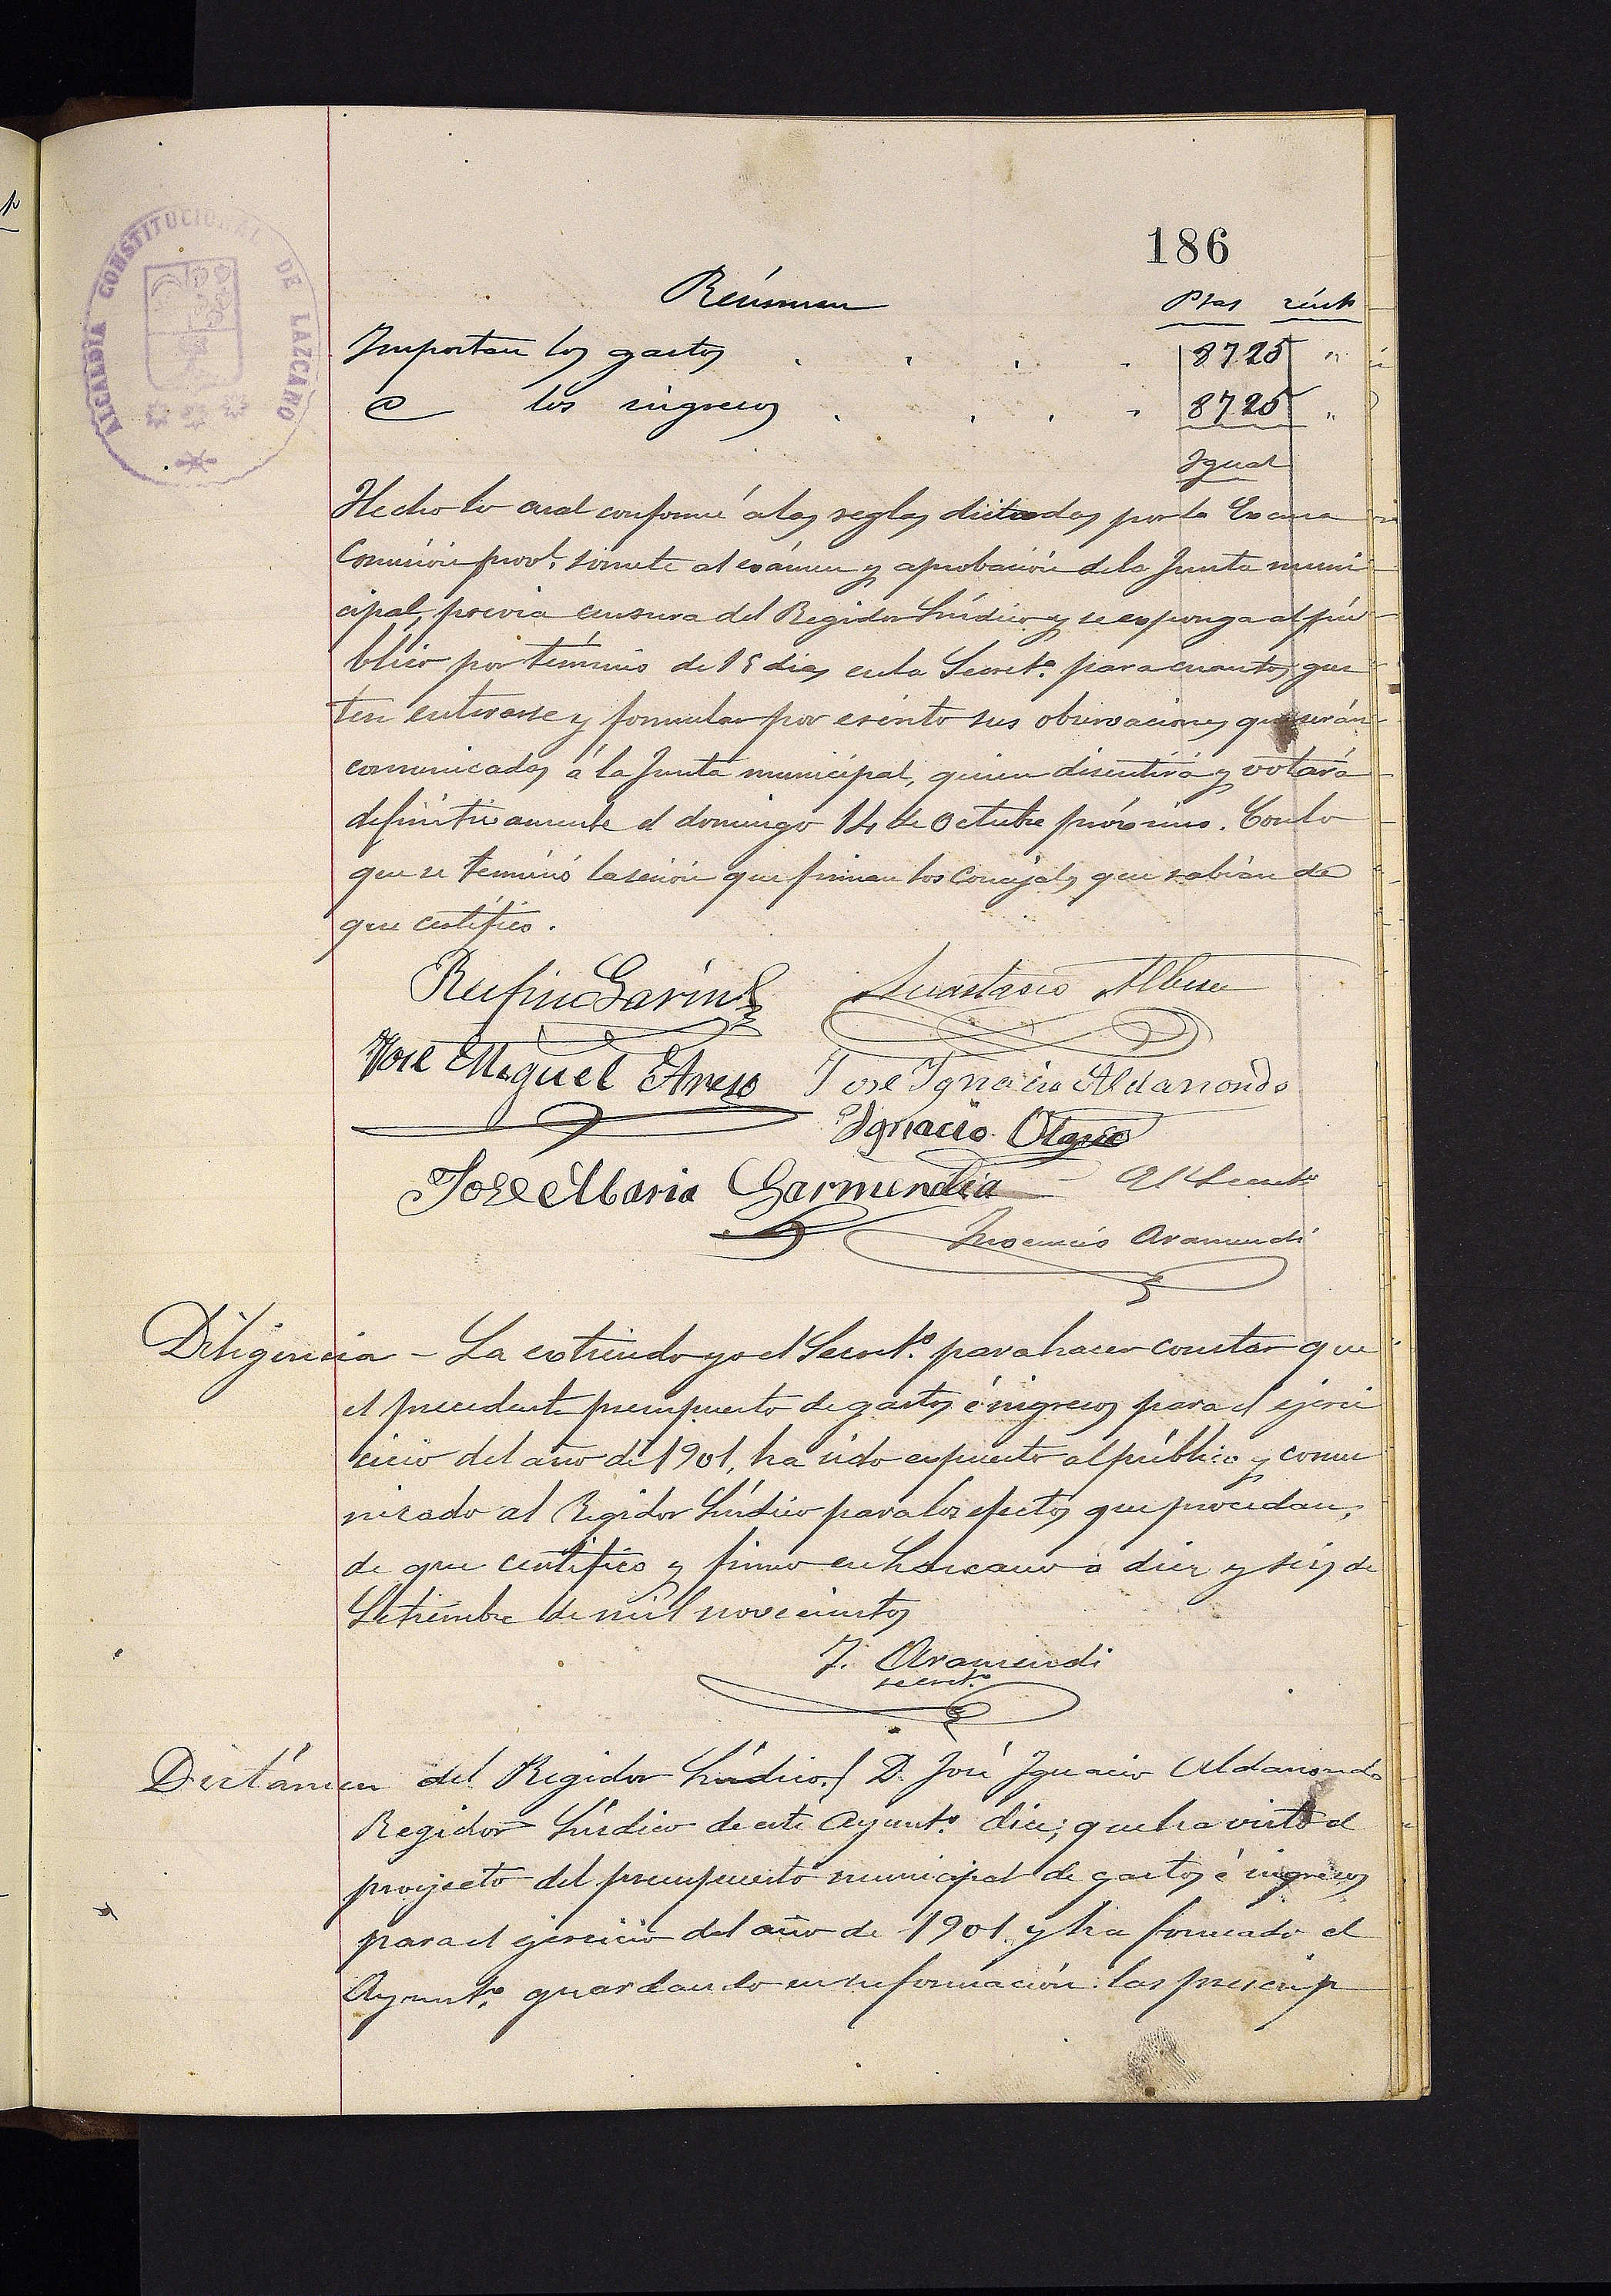 ALCALDIA CONSTITUCIONAL DE LAZCANO
186
Resúmen Ptas cénts
Importan los gastos . . . . 8725 "
@ los ingresos . . . . 8725 "
Igual
Hecho lo cual conforme á las reglas dictadas por la Excma
Comisión provl. somete al exámen y aprobación de la Junta muni
cipal, previa censura del Regidor Síndico y se exponga al pú
blico por término de 15 dias en la Secretª. para cuantos gus
ten enterarse y formular por escrito sus observaciones que serán
comunicadas á la Junta municipal, quien discutirá y votará
definitivamente el domingo 14 de Octubre próximo. Con lo
que se terminó la sesión que firman los Concejales que sabian de
que certifico.
Rufino Garin Anastasio Albisu
José Miguel Areso José Ignacio Aldasoro
Ignacio Otegui
José Maria Garmendia El Secretº
Inocencio Aramendi
Diligencia - La extiendo yo el Secretº. para hacer constar que
el precedente presupuesto de gastos é ingresos para el ejerci
cicio del año de 1901, ha sido expuesto al público y comu
nicado al Regidor Síndico para los efectos que procedan,
de que certifico y firmo en Lazcano á diez y seis de
Setiembre de mil novecientos
I. Aramendi
secretº
Dictámen del Regidor Síndico. D. José Ignacio Aldasoro
Regidor Síndico de este Ayuntº. dice; que ha visto el
proyecto del presupuesto municipal de gastos é ingresos
para el ejercicio del año de 1901 y ha formado el
Ayuntº. guardando en su formación las prescrip